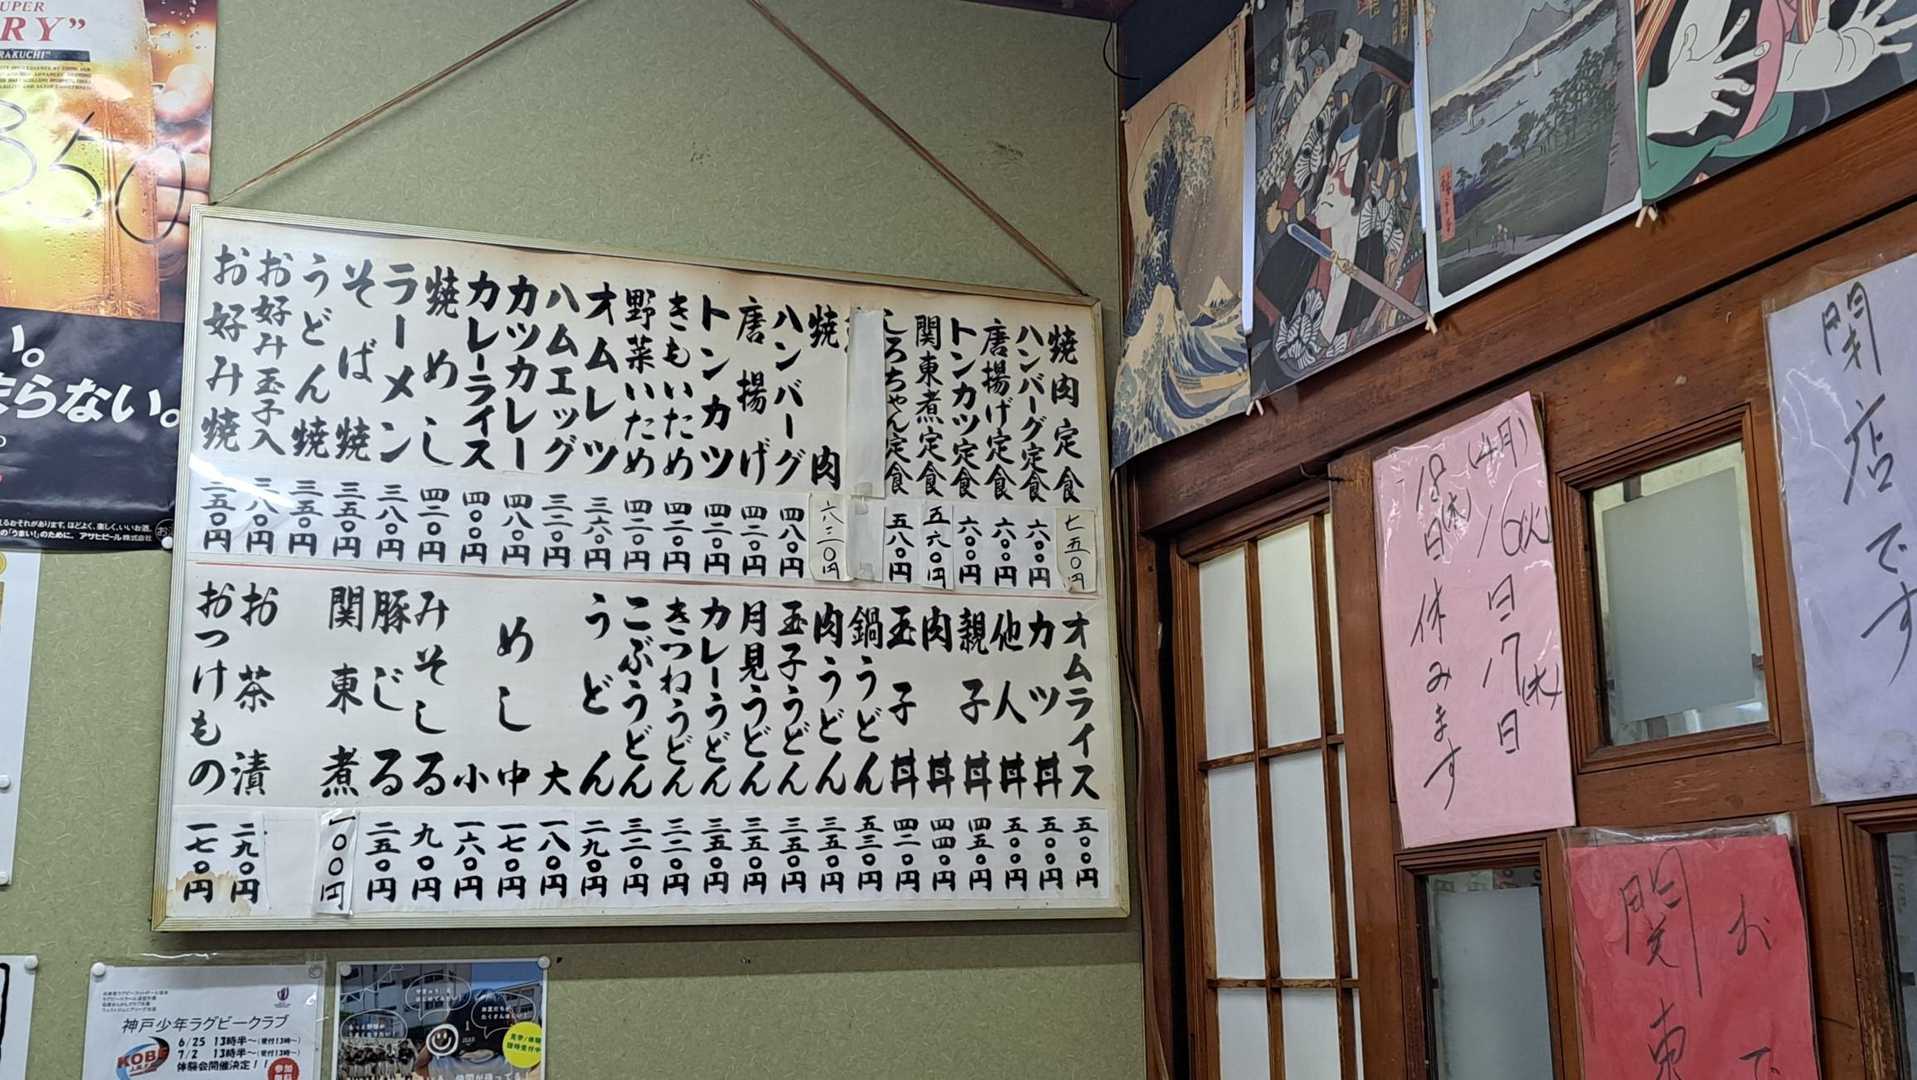 SUPER
RY”
RAKUCHI"
350
い。
まらない。
アサヒビール株式会社
焼肉定食 七五〇円
ハンバーグ定食 六〇〇円
唐揚げ定食 六〇〇円
トンカツ定食 六〇〇円
関東煮定食 五六〇円
しろちゃん定食 五八〇円
焼肉 六三〇円
ハンバーグ 四八〇円
唐揚げ 四二〇円
トンカツ 四二〇円
きもいため 四二〇円
野菜いため 四二〇円
オムレツ 三六〇円
ハムエッグ 三二〇円
カツカレー 四八〇円
カレーライス 四〇〇円
焼めし 四二〇円
ラーメン 三八〇円
そば焼 三五〇円
うどん焼 三五〇円
お好み玉子入 二八〇円
お好み焼 二五〇円
オムライス 五〇〇円
カツ丼 五〇〇円
他人丼 五〇〇円
親子丼 四五〇円
肉丼 四四〇円
玉子丼 四二〇円
鍋うどん 五三〇円
肉うどん 三五〇円
玉子うどん 三五〇円
月見うどん 三五〇円
カレーうどん 三五〇円
きつねうどん 三二〇円
こぶうどん 三二〇円
うどん 二九〇円
めし 大 一八〇円
中 一七〇円
小 一六〇円
みそしる 九〇円
豚じる 二五〇円
関東煮 一〇〇円
お茶漬 二九〇円
おつけもの 一七〇円
開店です
(4月)16(火)日17(水)日
18(木)日休みます
おで
関東
神戸少年ラグビークラブ
6/25 13時半〜(受付13時〜)
7/2 13時半〜(受付13時〜)
体験会開催決定!!
KOBE
参加
見学/体験
随時受付中